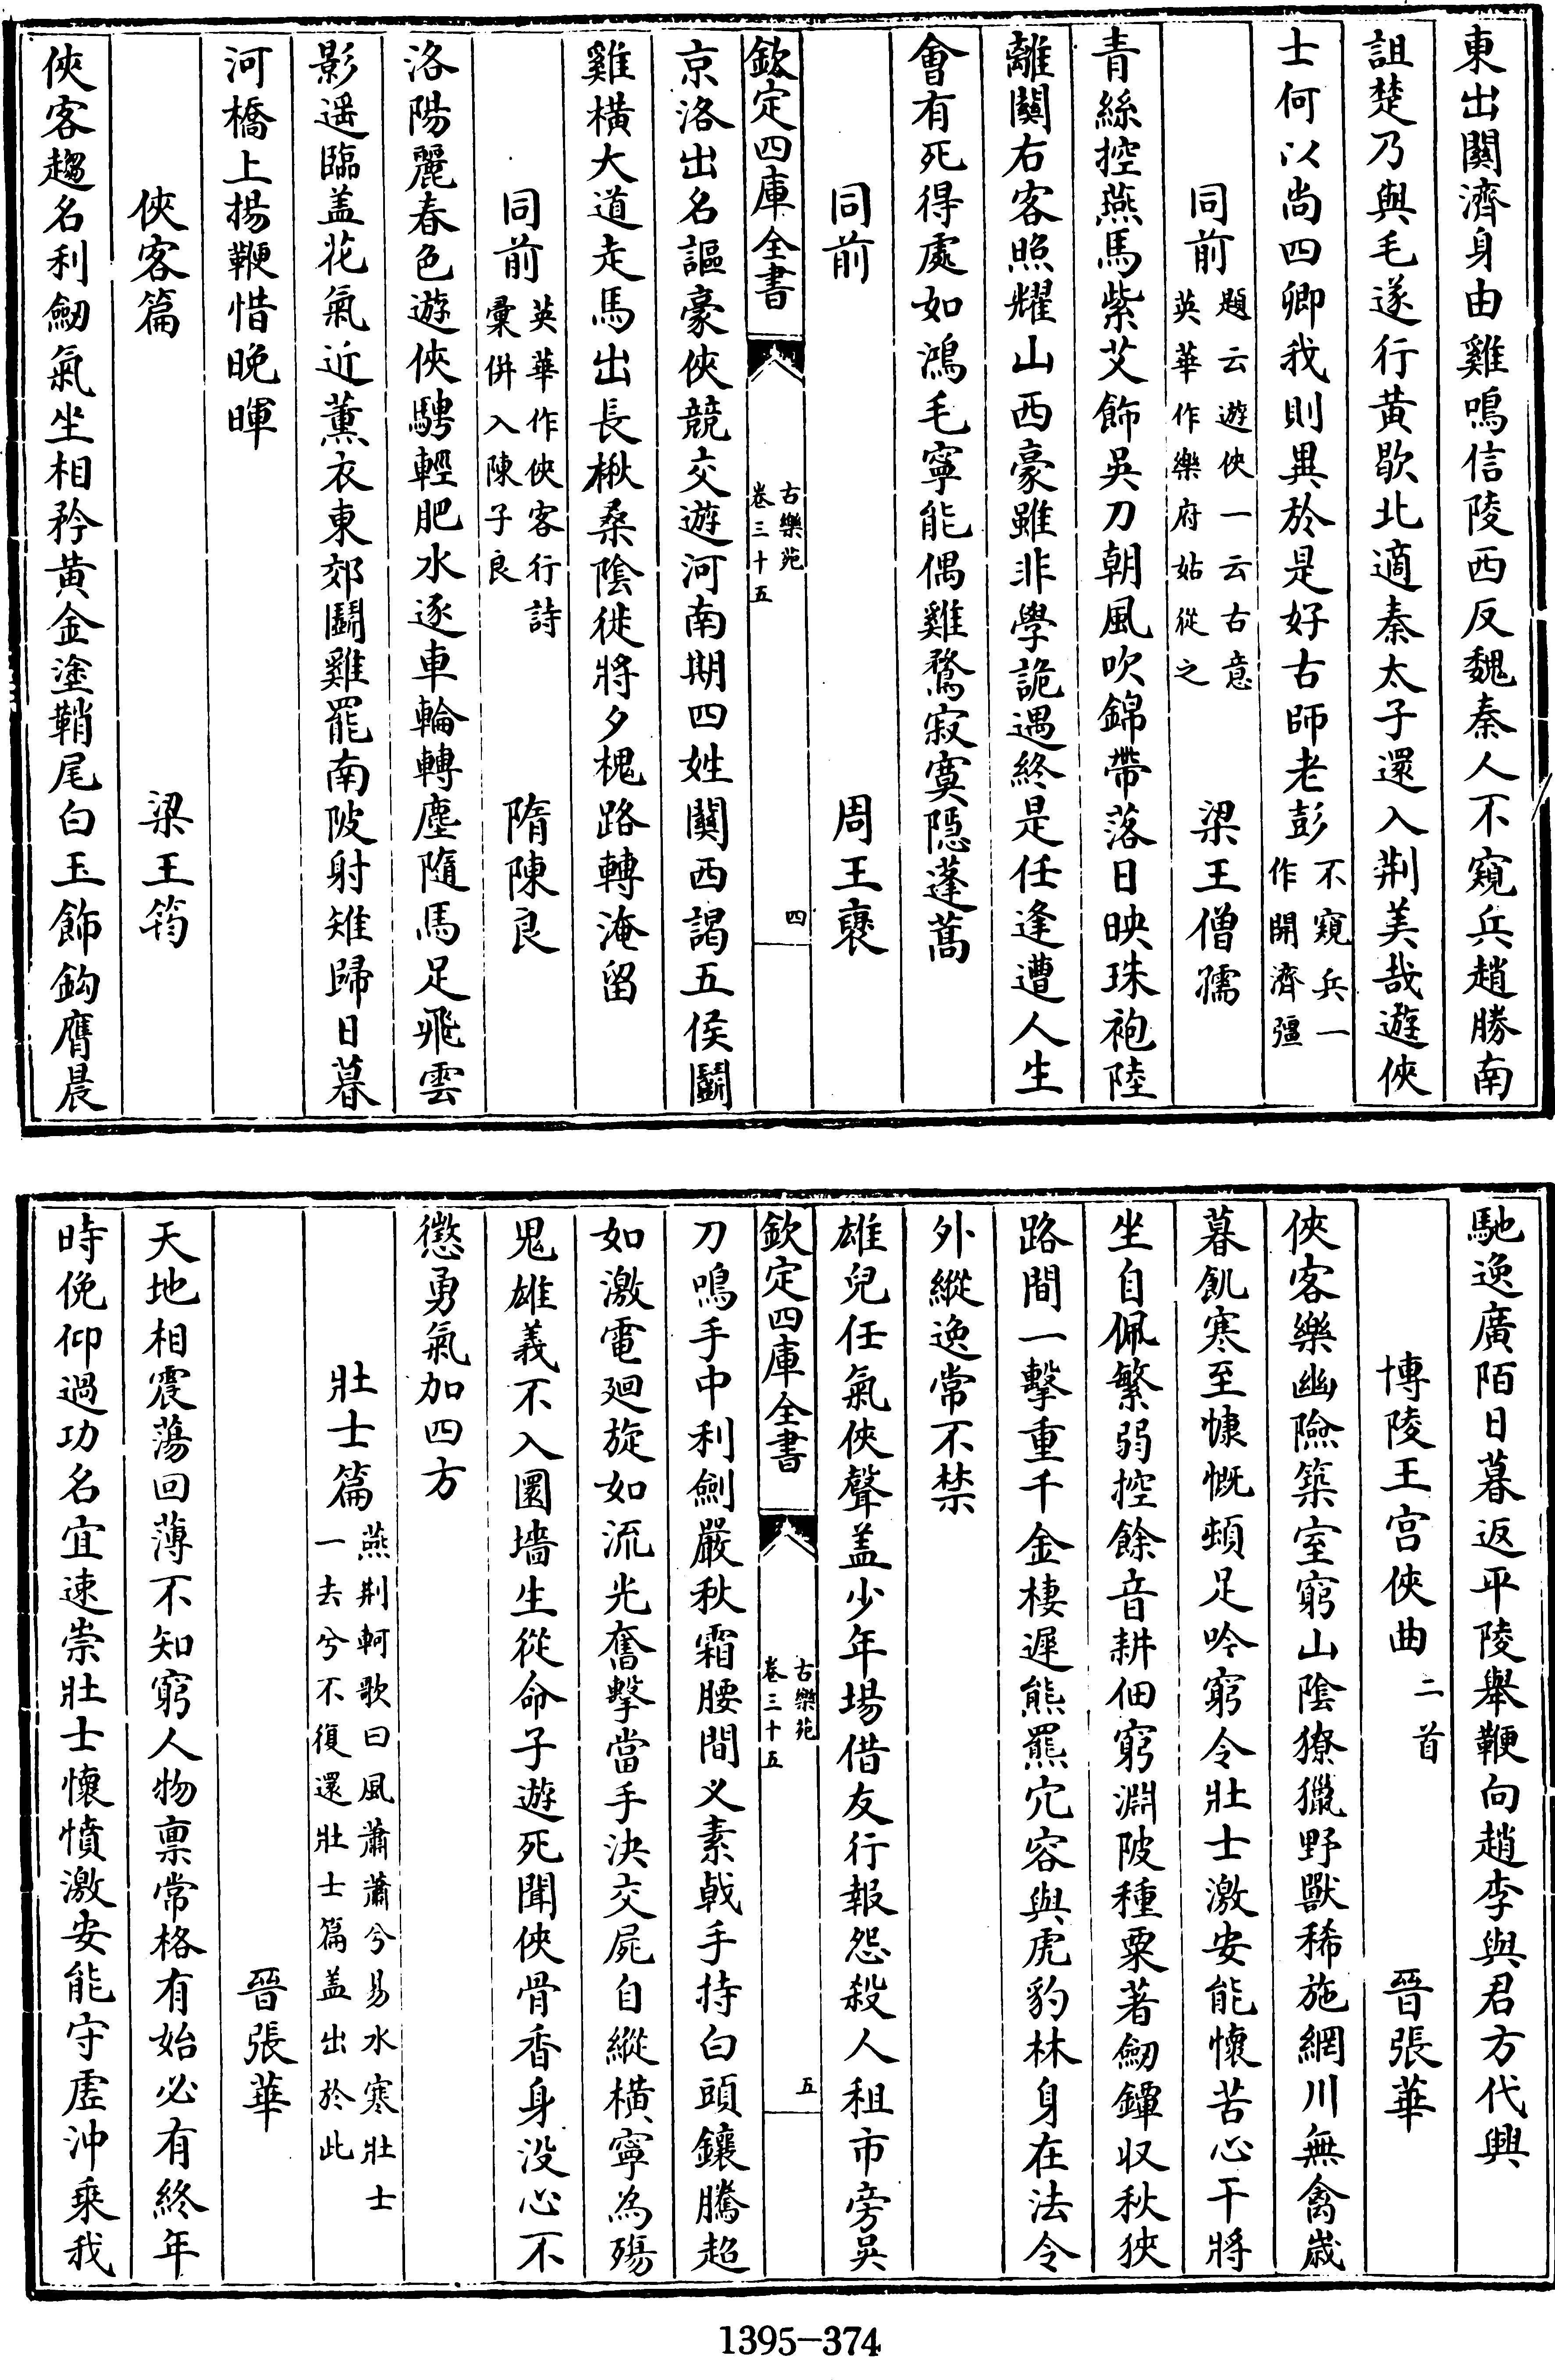 東出關濟身由雞鳴信陵西反魏秦人不窺兵趙勝南
詛楚乃與毛遂行黃歇北適秦太子還入荆美哉遊俠
士何以尚四卿我則異於是好古師老彭不窺兵一
作開濟彊
同前題云遊俠一云古意
英華作樂府姑從之 梁王僧孺
青絲控燕馬紫艾飾吳刀朝風吹錦帶落日映珠袍陸
離關右客照耀山西豪雖非學詭遇終是任逢遭人生
會有死得處如鴻毛寧能偶雞鶩寂寞隱蓬蒿
同前 周王襃
欽定四庫全書 古樂苑
卷三十五 四
京洛出名謳豪俠競交遊河南期四姓關西謁五侯鬭
雞橫大道走馬出長楸桑陰徙將夕槐路轉淹留
同前英華作俠客行詩
彙併入陳子良 隋陳良
洛陽麗春色遊俠騁輕肥水逐車輪轉塵隨馬足飛雲
影遥臨盖花氣近薰衣東郊鬭雞罷南陂射雉歸日暮
河橋上揚鞭惜晚暉
俠客篇 梁王筠
俠客趨名利劒氣坐相矜黃金塗鞘尾白玉飾鈎膺晨
馳逸廣陌日暮返平陵舉鞭向趙李與君方代興
博陵王宫俠曲二首 晉張華
俠客樂幽險築室窮山陰獠獵野獸稀施網川無禽歳
暮飢寒至慷慨頓足吟窮令壯士激安能懷苦心干將
坐自佩繁弱控餘音耕佃窮淵陂種粟著劒鐔収秋狹
路間一擊重千金棲遲熊羆穴容與虎豹林身在法令
外縱逸常不禁
雄兒任氣俠聲盖少年場借友行報怨殺人租市旁吳
欽定四庫全書 古樂苑
卷三十五 五
刀鳴手中利劍嚴秋霜腰間义素戟手持白頭鑲騰超
如激電廻旋如流光奮擊當手決交屍自縱橫寧為殤
鬼雄義不入圜墻生從命子遊死聞俠骨香身没心不
懲勇氣加四方
壯士篇燕荆軻歌曰風蕭蕭兮易水寒壯士
一去兮不復還壯士篇盖出於此
晉張華
天地相震蕩回薄不知窮人物禀常格有始必有終年
時俛仰過功名宜速崇壯士懷憤激安能守虛沖乘我
1395-374